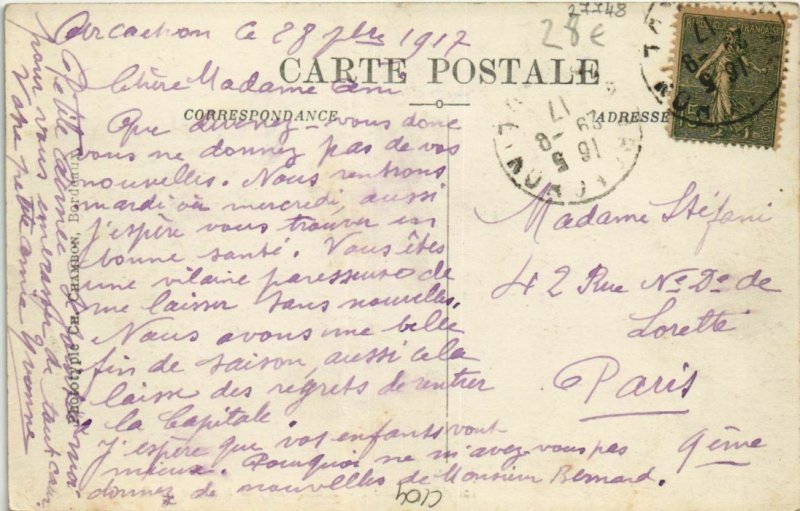 27748
28€
Arcachon le 28 7bre 1917
CARTE POSTALE
CORRESPONDANCE
ADRESSE
REPUBLIQUE FRANÇAISE
Chère Madame Ami
Que devenez-vous donc
vous ne donnez pas de vos
nouvelles. Nous rentrons
mardi ou mercredi, aussi
j'espère vous trouver en
bonne santé. Vous êtes
une vilaine paresseuse de
me laisser sans nouvelles.
Nous avons une belle
fin de saison, aussi cela
laisse des regrets de rentrer
à la Capitale.
J'espère que vos enfants vont
mieux. Pourquoi ne m'avez-vous pas
donnez de nouvelles de Monsieur Bernard.
Petite
pour vous embrasser de tout cœur
Votre petite amie Yvonne
Phototypie Ch. CHAMBON, Bordeaux
Madame Stéfani
42 Rue N. D. de
Lorette
Paris
9ème
C109